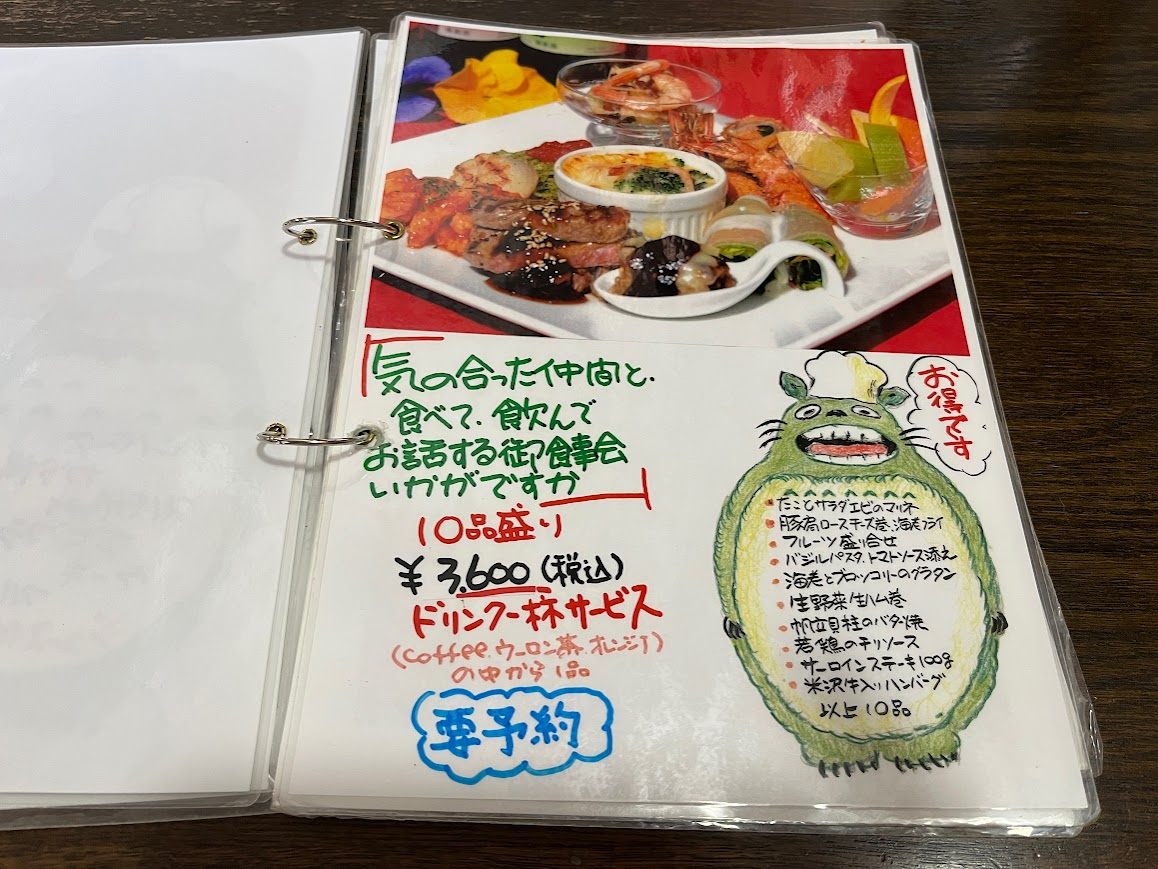 気の合った仲間と、
食べて、食飲んで
お話する御食事会
いかがですか
10品盛り
¥3,600(税込)
ドリンク一杯サービス
(coffee、ウーロン茶、オレンジJ)
の中から1品
要予約
お得です
たことサラダエビのマリネ
豚肩ロースチーズ巻、海老フライ
フルーツ盛り合せ
バジルパスタ、トマトソース添え
海老とブロッコリーのグラタン
生野菜生ハム巻
帆立貝柱のバター焼
若鶏のチリソース
サーロインステーキ100g
米沢牛入りハンバーグ
以上10品